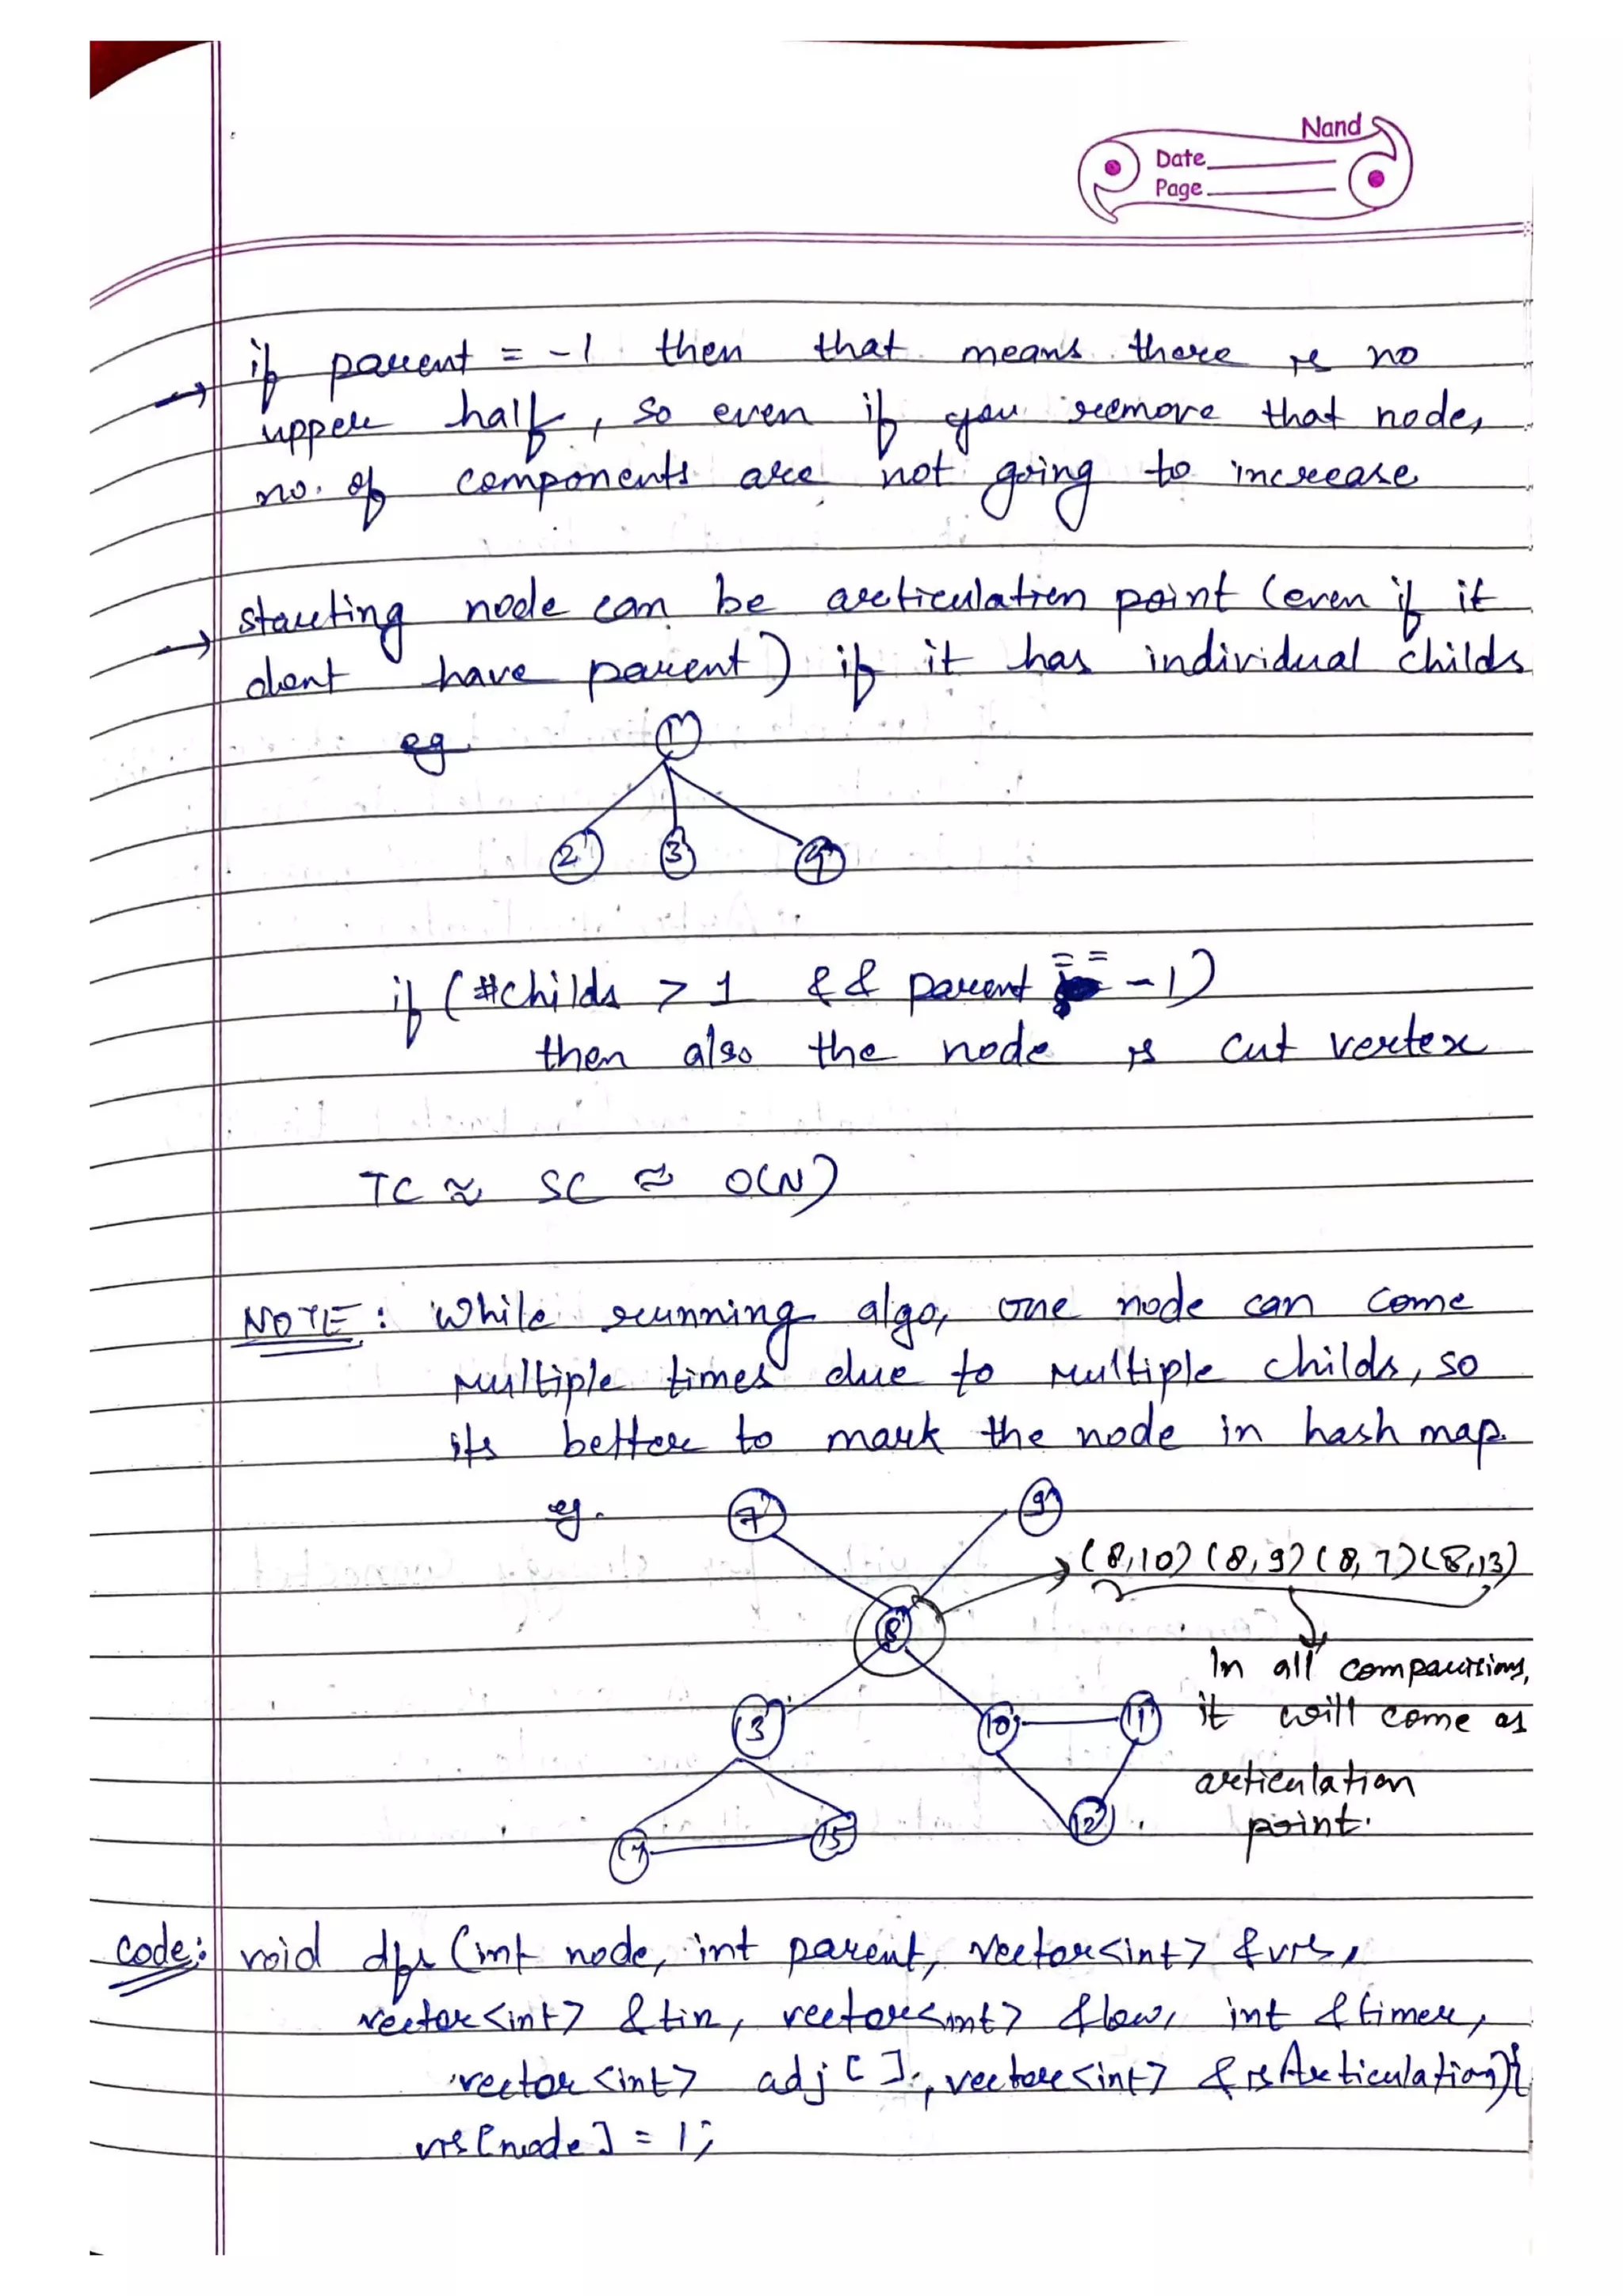 Nand
Date
Page
→ if parent = -1 then that means there is no
upper half, so even if you remove that node,
no. of components are not going to increase
→ starting node can be articulation point (even if it
dont have parent) if it has individual childs
eg
1
2 3 4
if (#childs > 1 && parent == -1)
then also the node is cut vertex
TC ≈ SC ≈ O(N)
NOTE: While running algo, one node can come
multiple times due to multiple childs, so
its better to mark the node in hash map.
eg.
7 9
→ (8,10) (8,9) (8,7) (8,13)
8
In all comparisions,
13 10 11 it will come as
articulation
12 point.
14 15
code: void dfs (int node, int parent, vector<int> &vis,
vector<int> &tin, vector<int> &low, int &timer,
vector<int> adj[], vector<int> &isArticulation){
vis[node] = 1;